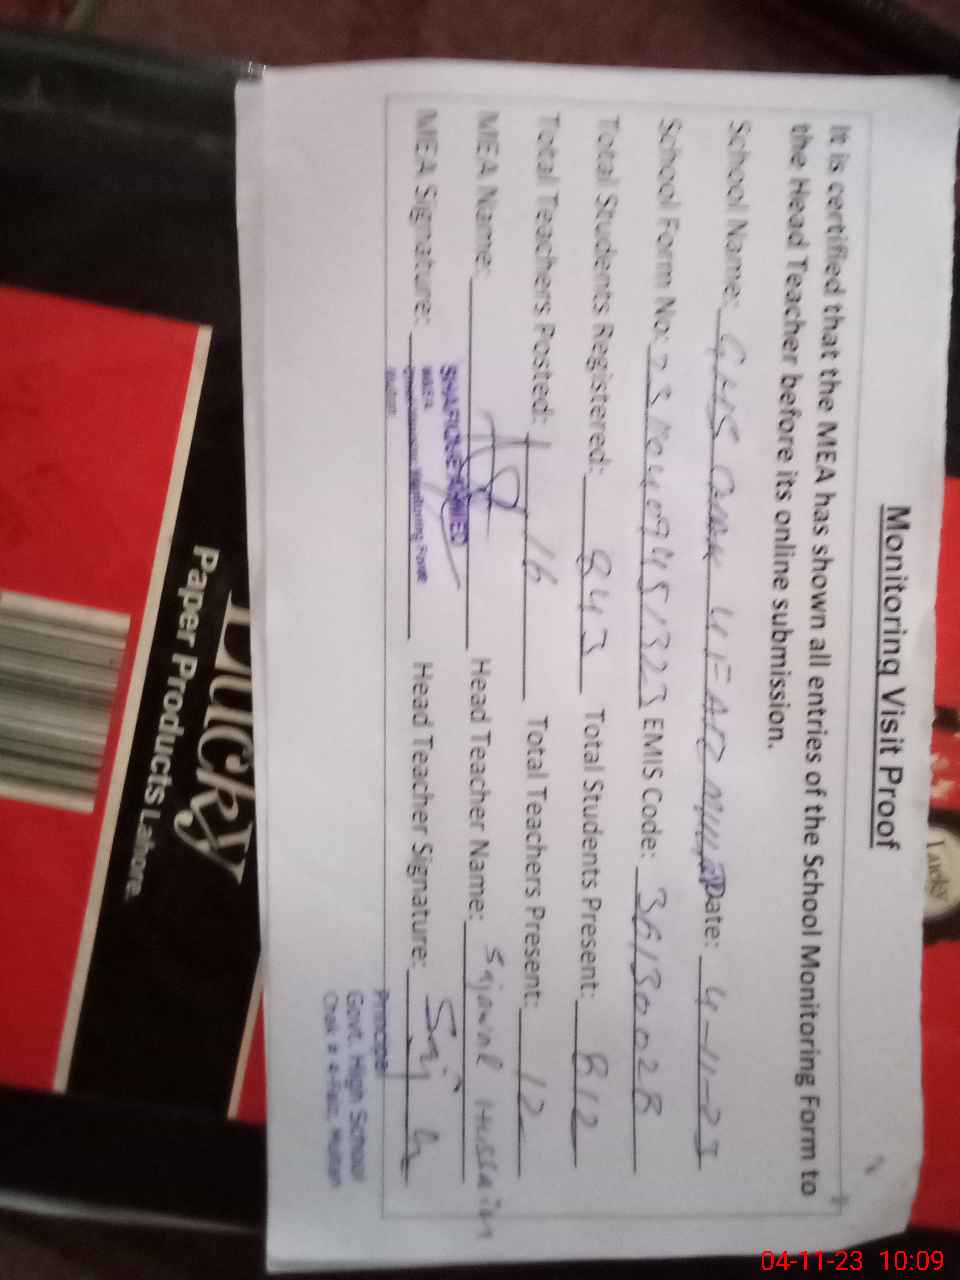 Monitoring Visit Proof
It is certified that the MEA has shown all entries of the School Monitoring Form to
the Head Teacher before its online submission.
School Name: GHS Chak 4 FAIZ Date: 4-11-23
School Form No: EMIS Code: 36130028
Total Students Registered: 843 Total Students Present: 812
Total Teachers Posted: 16 Total Teachers Present: 12
MEA Name: Head Teacher Name: Sajawal Hussain
MEA Signature: Head Teacher Signature:
MEA
Multan
Principal
Govt. High School
Chak # 4-Faiz, Multan
Lucky
Paper Products Lahore.
Lucky
04-11-23 10:09